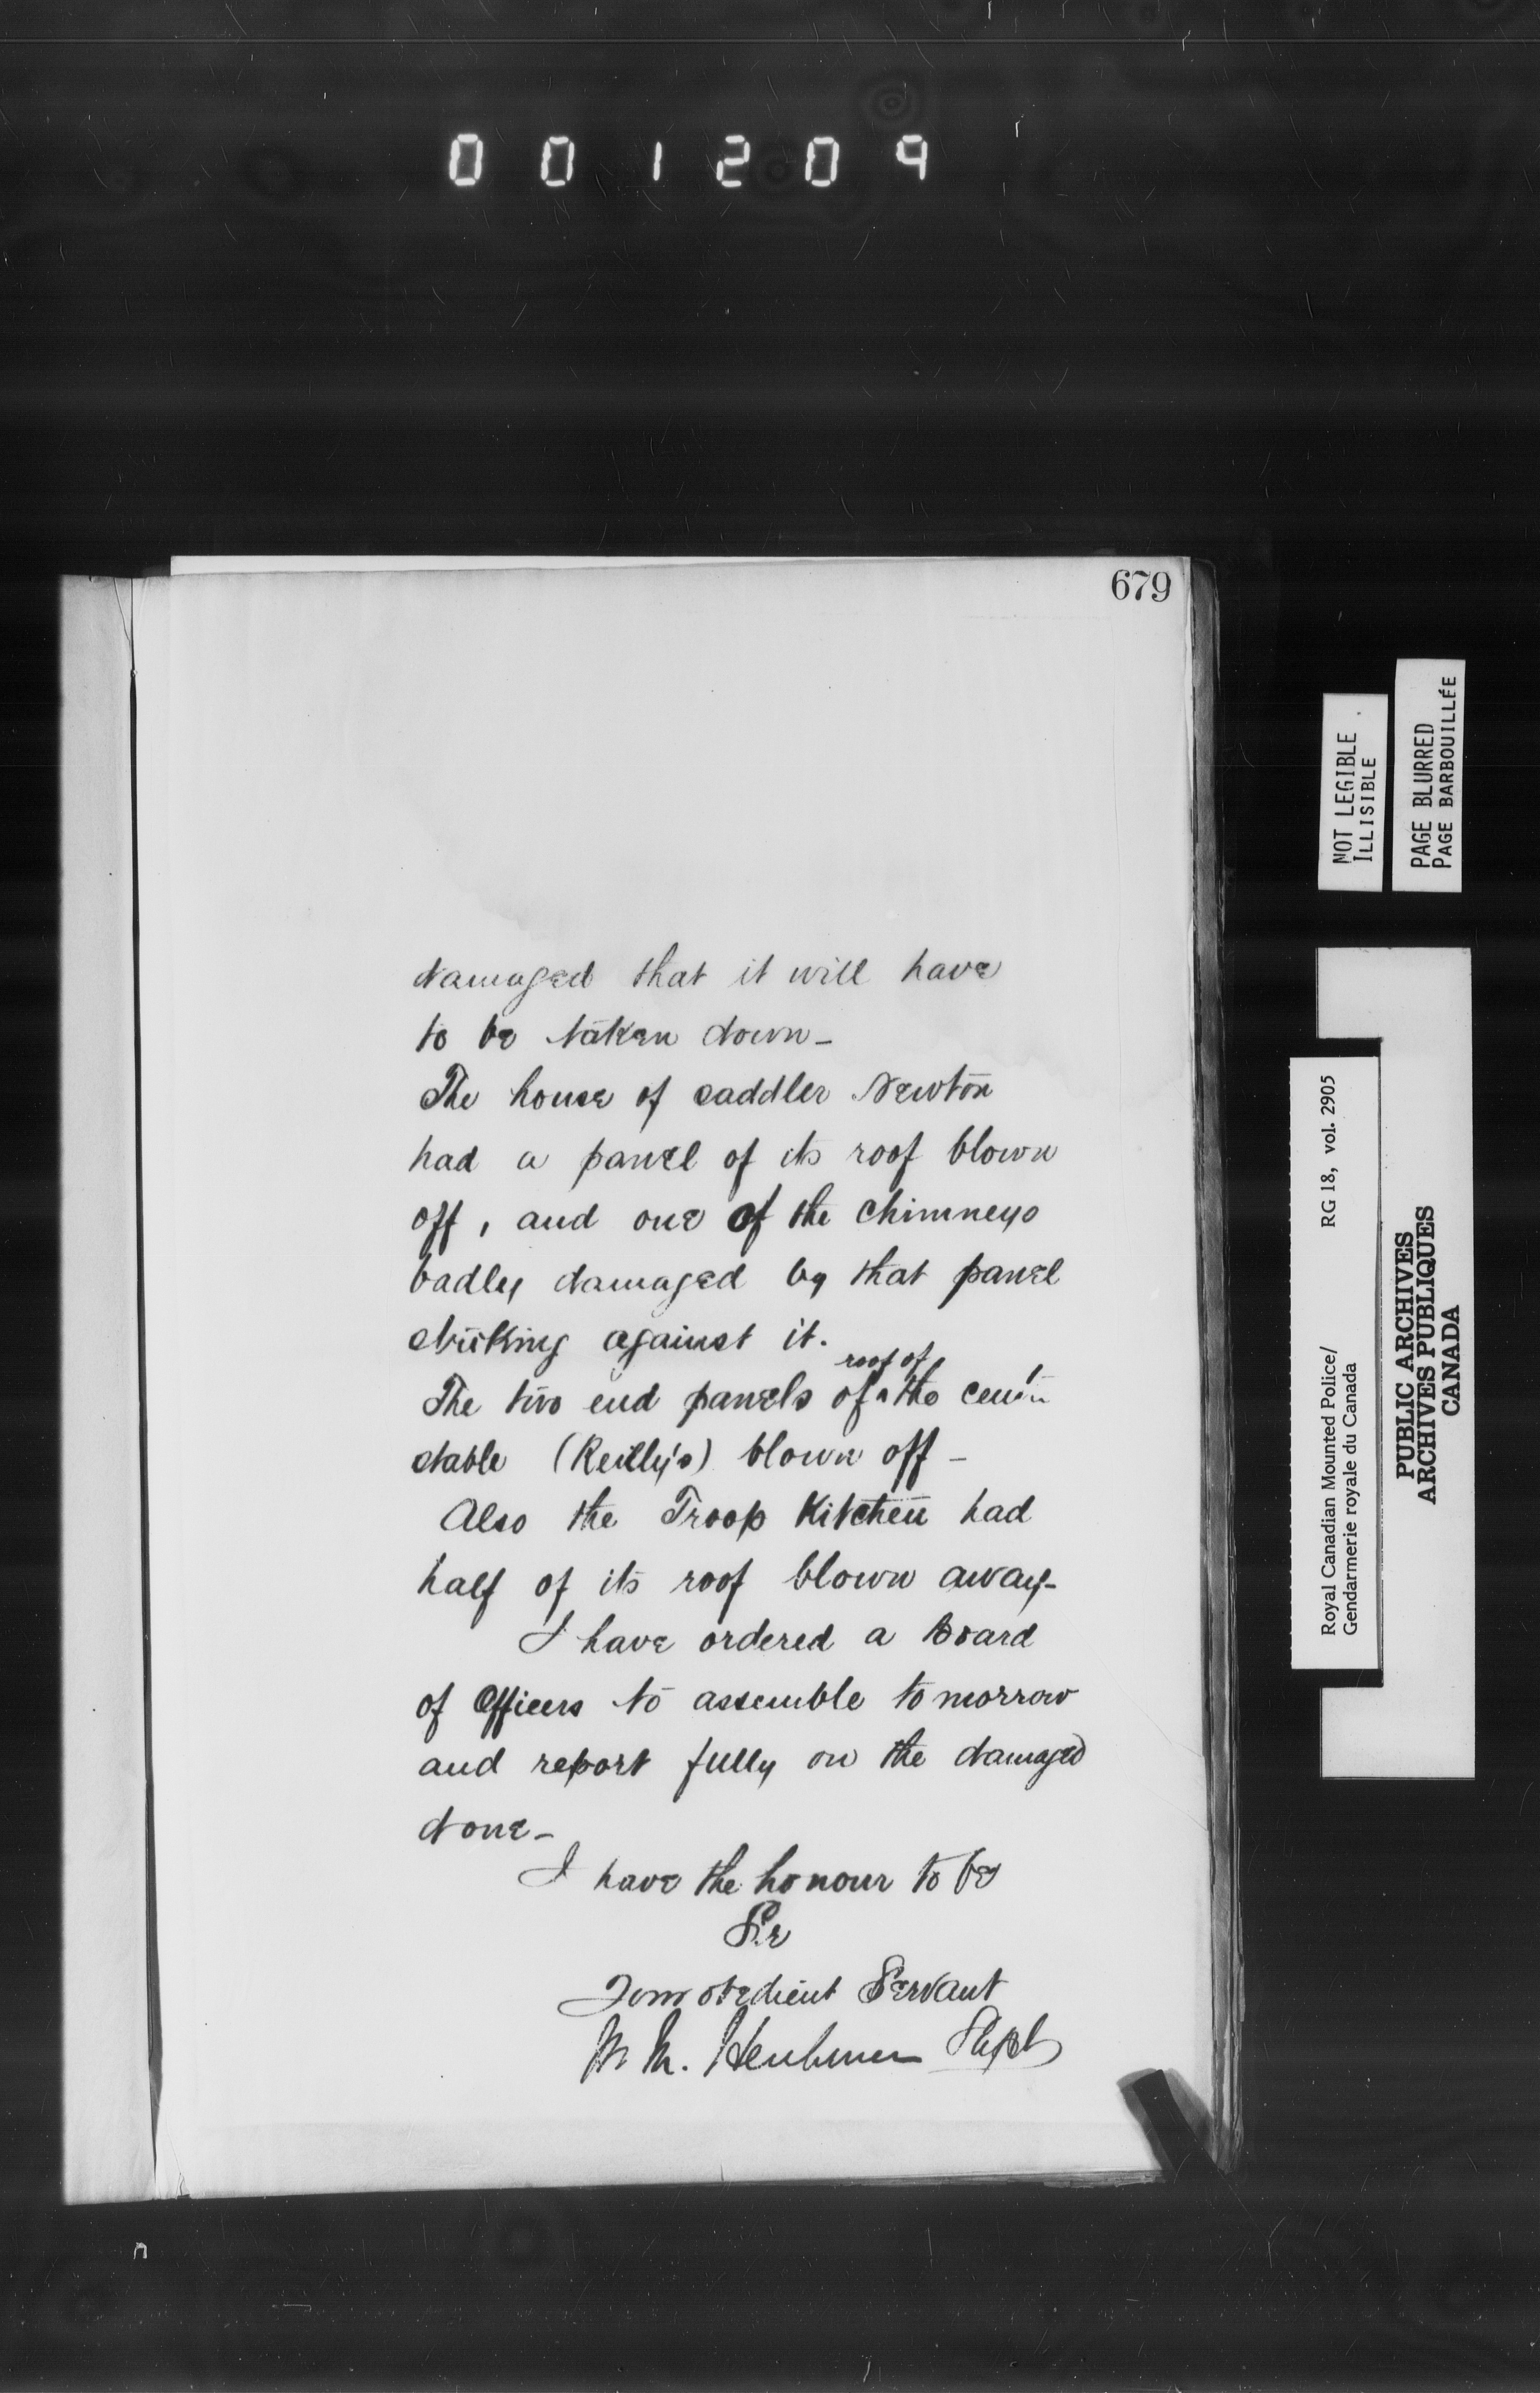 001209
679
damaged that it will have
to be taken down -
The house of saddler Newton
had a panel of its roof blown
off, and one of the chimneys
badly damaged by that panel
striking against it.
roof of
The two end panels of ^ the
stable (Reilly's) blown off -
Also the Troop Kitchen had
half of its roof blown away -
I have ordered a Board
of Officers to assemble tomorrow
and report fully on the damaged
done -
I have the honour to be
Sir
Your obedient Servant
Supt
NOT LEGIBLE
ILLISIBLE
PAGE BLURRED
PAGE BARBOUILLÉE
Royal Canadian Mounted Police/ RG 18, vol. 2905
Gendarmerie royale du Canada
PUBLIC ARCHIVES
ARCHIVES PUBLIQUES
CANADA